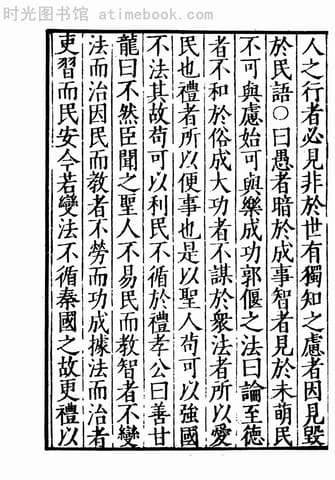 时光图书馆 www.atimebook.com
人之行者必見非於世有獨知之慮者因見毀
於民語○曰愚者暗於成事智者見於未萌民
不可與慮始可與樂成功郭偃之法曰論至德
者不和於俗成大功者不謀於衆法者所以愛
民也禮者所以便事也是以聖人苟可以強國
不法其故苟可以利民不循於禮孝公曰善甘
龍曰不然臣聞之聖人不易民而教智者不變
法而治因民而教者不勞而功成據法而治者
吏習而民安令若變法不循秦國之故更禮以